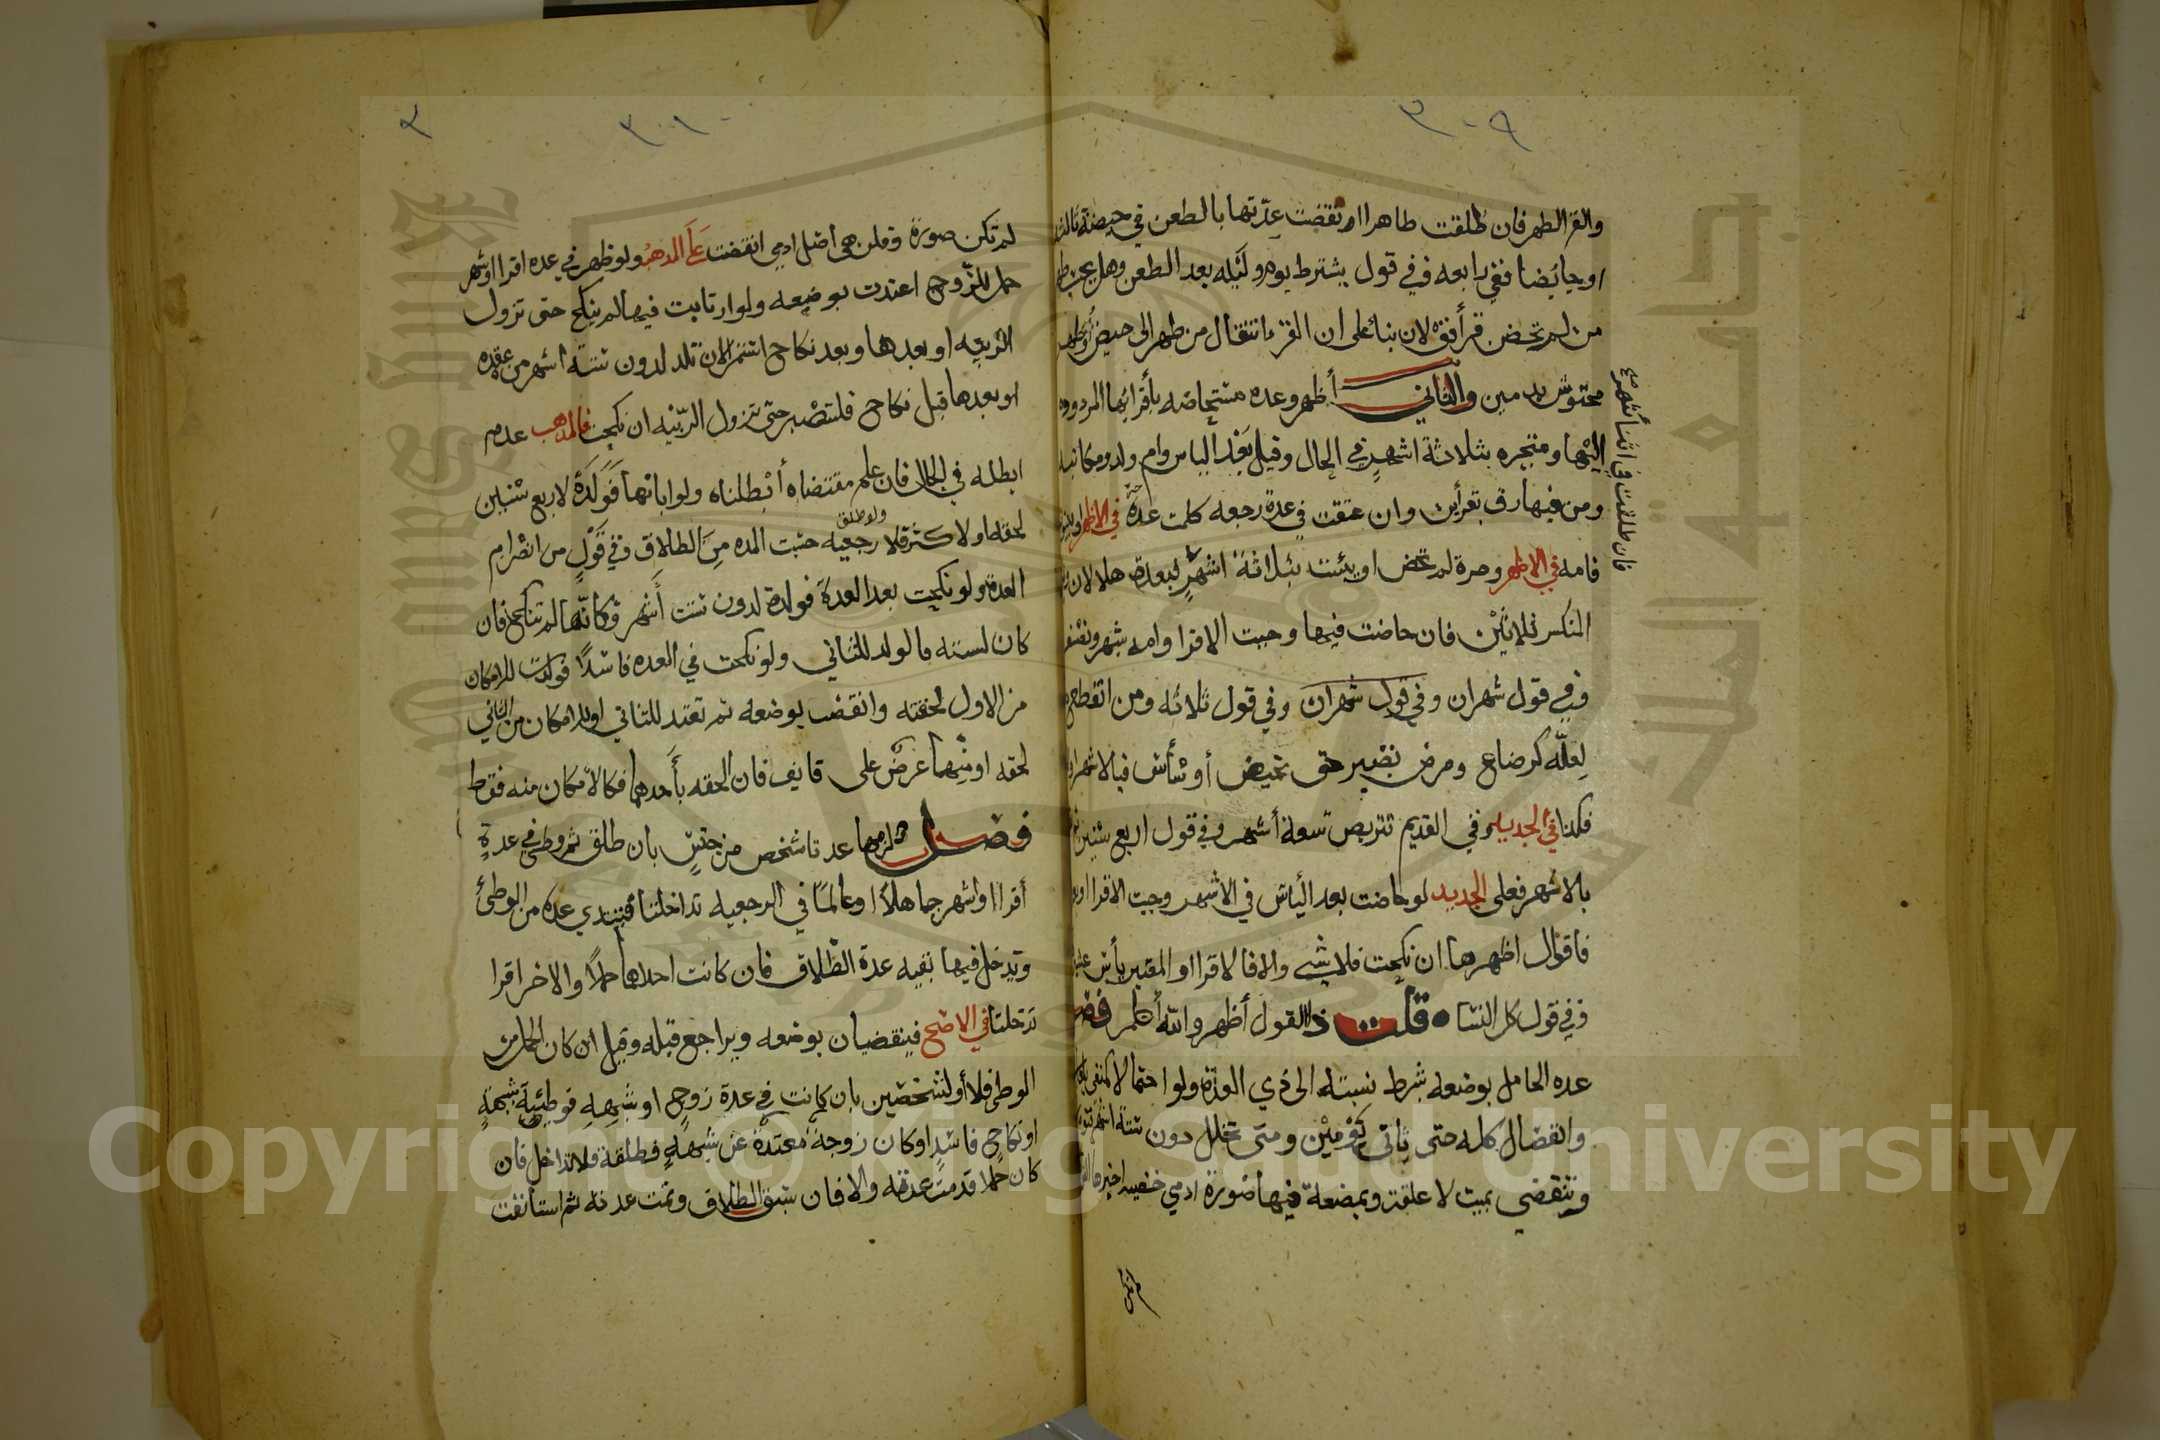 ٣٠٩
والقرا الطهر فان طلقت طاهرا انقضت عدّتها بالطعن في حيضة ثالثة
او حايضا ففي رابعه وفي قول يشترط يوم وليله بعد الطعن وهل يحسب طهر
من لم تحض قرأ قولان بنا على ان القرء انتقال من طهر الى حيض أو طهر
محتوش بدمين والثاني أظهر وعده مستحاضه بأقرائها المردوده
اليها ومتحيره بثلاثة اشهر في الحال وقيل بعد الياس وام ولد ومكاتبه
ومن فيها رق بقرأين وان عتقت في عدة رجعه كملت عدة حرة في الاظهر او بينونه
فامه في الاظهر وحرة لم تحض او يئست بثلاثة اشهرٍ
المنكسر ثلاثين فان حاضت فيها وجبت الاقرا وامه بشهر ونصف
وفي قول شهران وفي قول شهران وفي قول ثلاثه ومن انقطع
لعلّه كرضاع ومرض تصبر حتى تحيض أو تيأس فبالاشهر
فكذا في الجديد وفي القديم تتربص تسعة أشهر وفي قول اربع سنين
بالاشهر فعلى الجديد لو حاضت بعد اليأس في الاشهر وجبت الاقرا
فاقوال اظهرها ان نكحت فلا شي والا فالاقرا والمعتبر يأس
وفي قول كل النسا قلت ذا القول أظهر والله أعلم فصل
عده الحامل بوضعه بشرط نسبته الى ذي العدة ولو احتمالا كمنفي بلعان
وانفصال كله حتى ثاني توءمين ومتى تخلل دون ستة اشهر
وتنقضي بميت لا علقة وبمضعة فيها صورة ادمي خفيه اخبر بها
لم تكن
فان طلقت في اثنا شهر صح
٣١٠
لم تكن صورة وقلن هي اصل ادمي انقضت على المذهب ولو ظهر في عده اقرا او شهر
حمل للزّوج اعتدت بوضعه ولو ارتابت فيها لم ينكح حتى تزول
الريبه او بعدها وبعد نكاح استمر الا ان تلد لدون ستة اشهر من عقده
او بعدها قبل نكاح فلتصبر حتى تزول الرّيبه ان نكحت فالمذهب عدم
ابطله في الحال فان علم مقتضاه أبطلناه ولو ابانها فولدة لاربع سنين
لحقه او لاكثر فلا ولو طلق رجعيه حسبت المده من الطلاق وفي قول من انصرام
العدة ولو نكحت بعد العدة فولدة لدون ست أشهر فكانّها لم تنكح فان
كان لسته فالولد للثاني ولو نكحت في العده فاسدًا فولدت للامكان
من الاول لحقته وانقضت بوضعه ثم تعتد للثاني او للامكان من الثاني
لحقه او منهما عرض على قايف فان الحقه بأحدهما فكالامكان منه فقط
فصل لزمها عدتا شخص من جنسٍ بان طلق ثم وطئ في عدة
أقرا او اشهر جاهلًا او عالمًا في الرجعيه تداخلتا فتبتدي عده من الوطئ
ويدخل فيها بقيه عدة الطّلاق فان كانت احداهما حملًا والاخر اقرا
تدخلتا في الاصح فينقضيان بوضعه ويراجع قبله وقيل ان كان الحمل من
الوطئ فلا أو لشخصين بان كانت في عدة زوج او شبهةٍ فوطئت بشبهةٍ
او نكاحٍ فاسدٍ او كان زوجة معتدة عن شبهةٍ فطلقة فلا تداخل فان
كان حملا قدمت عدته والا فان سبق الطلاق وتمت عدته ثم استانفت
Copyright © King Saud University